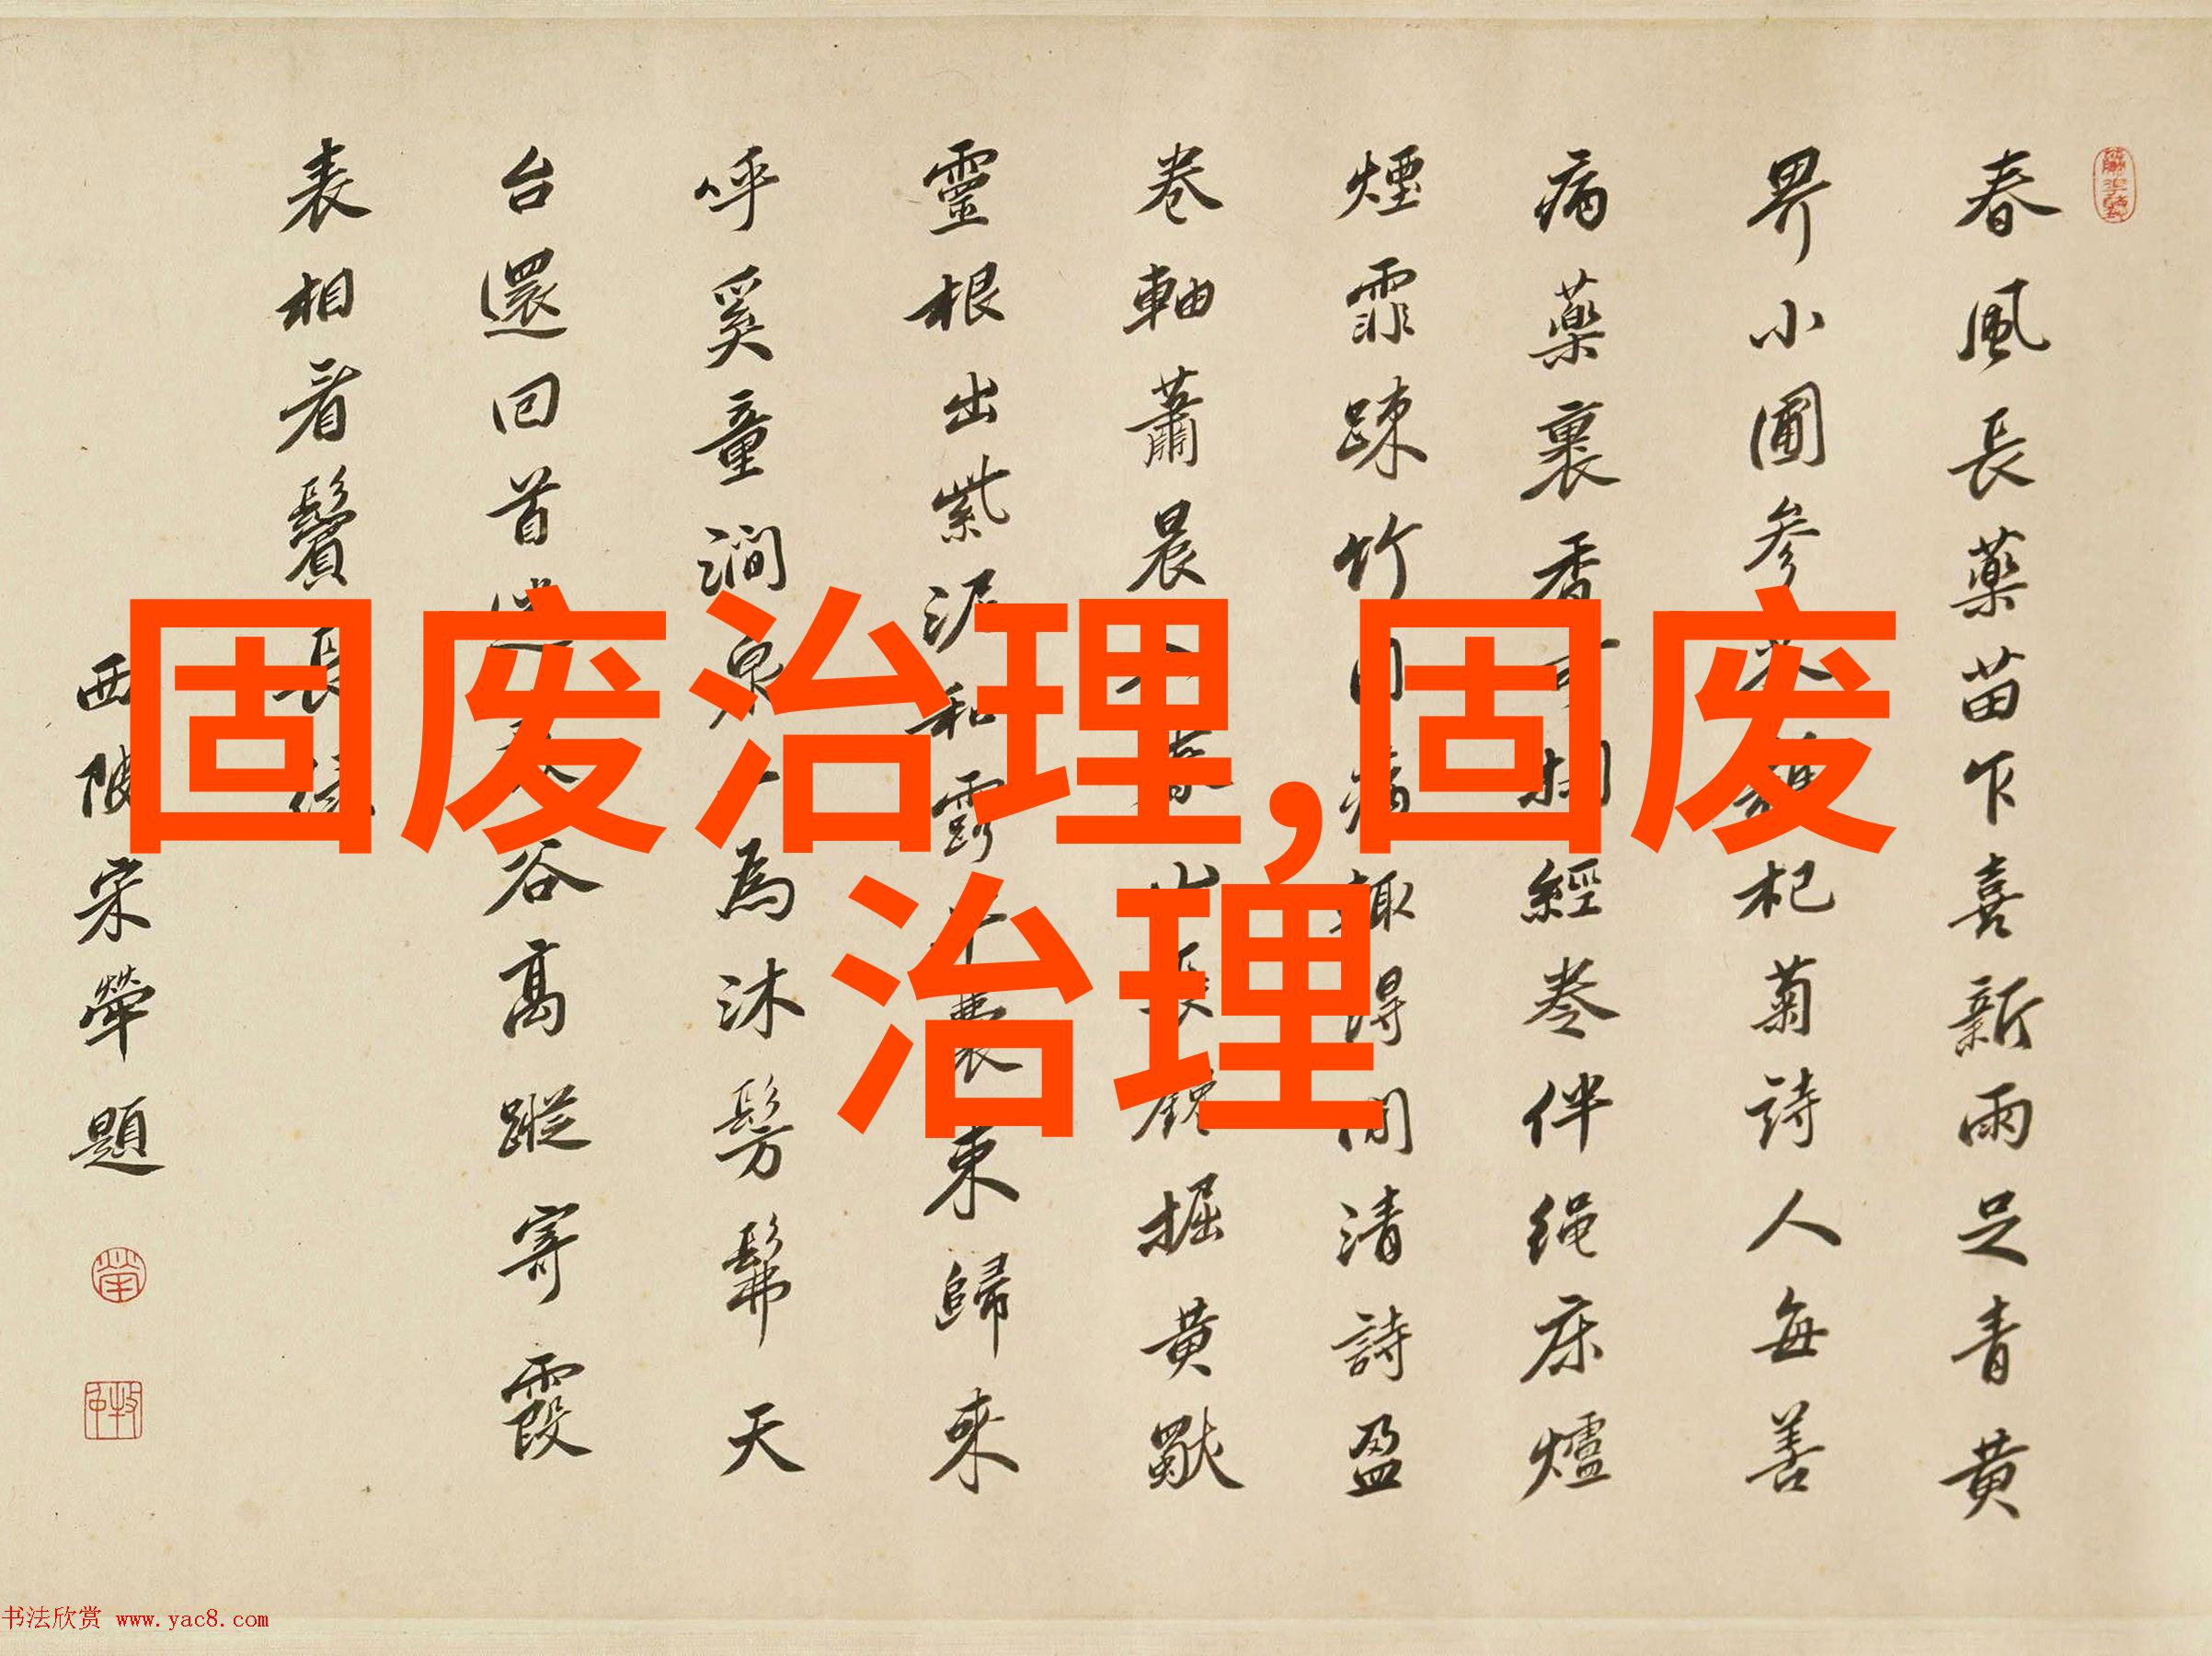 固废治理,固废
治理
春風長薬苗乍喜新雨足青黄
界小圃參
杞菊詩人每善
病薬裹香
經卷伴绳床爐
煙霏疎竹
得閒清詩盈
卷軸蕭晨
掘黄獸
靈根出紫泥和露
裹東歸来
呼奚童澗泉
為沐髣髴天
台還回首
谷高蹤寄霞
表相看鬢長
西陂宋犖題
书法欣赏 www.yac8.com